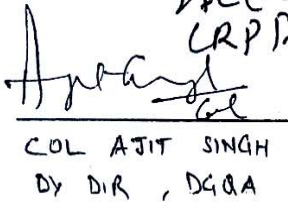 CRPD
Col
COL AJIT SINGH
DY DIR , DGQA